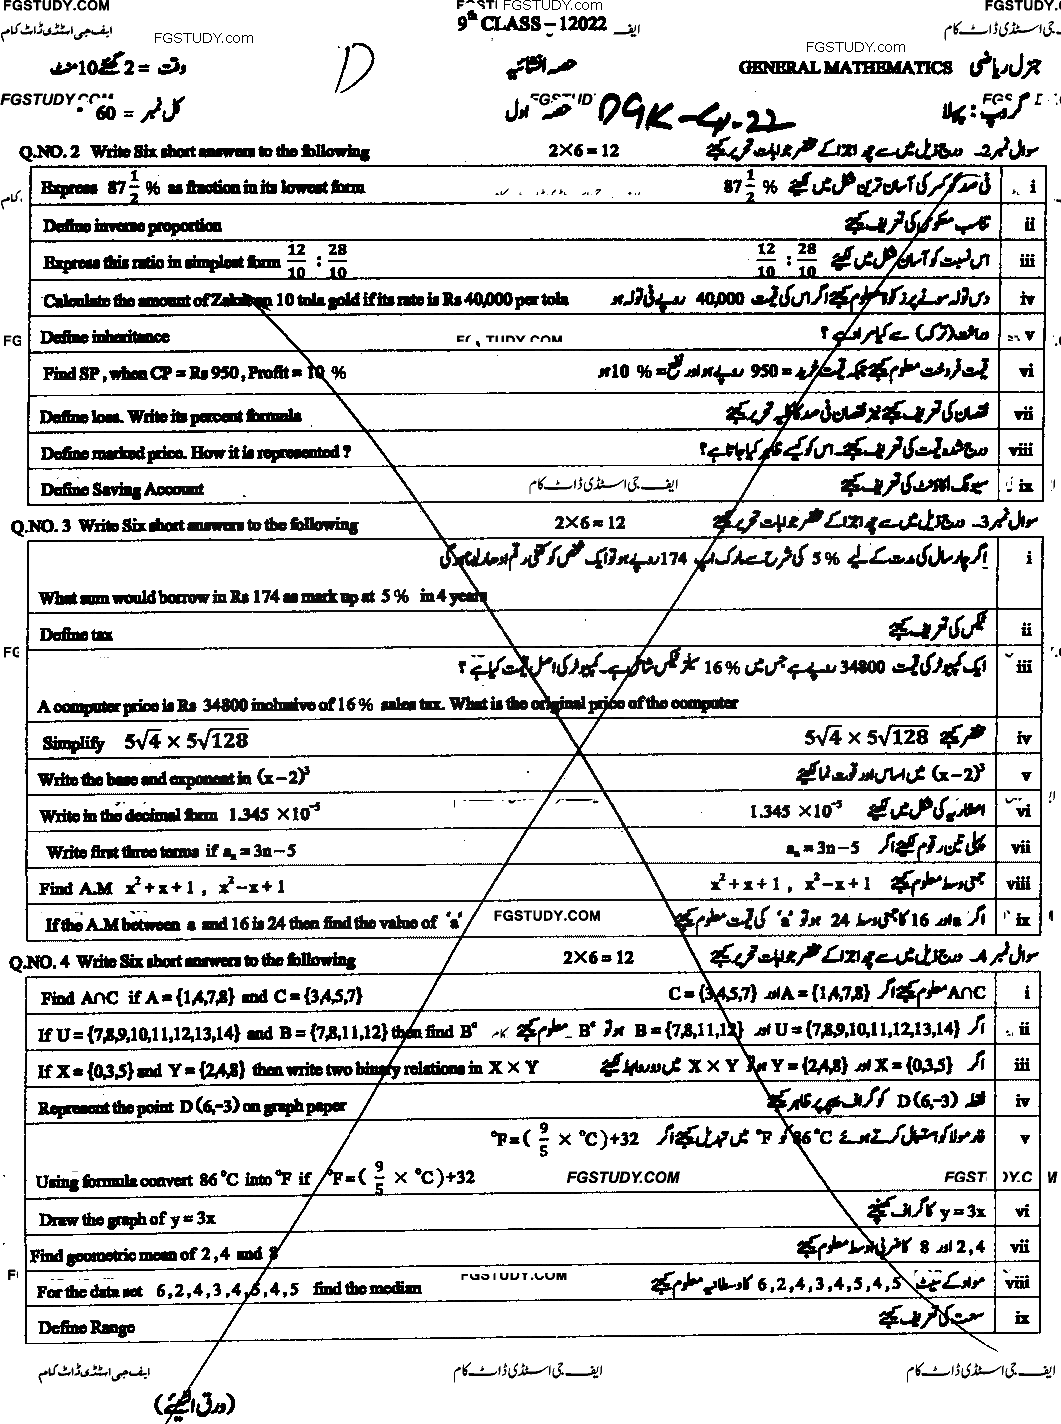 FGSTUDY.COM FGSTUDY.COM
9th CLASS – 12022 ایف
ایف جی اسٹڈی ڈاٹ کام جی اسٹڈی ڈاٹ کام
FGSTUDY.com FGSTUDY.com
GENERAL MATHEMATICS جنرل ریاضی حصہ انشائیہ وقت = 2 گھنٹے 10 منٹ
D
گروپ : پہلا حصہ اول کل نمبر = 60
DGK-G1-22
Q.NO. 2 Write Six short answers to the following 2×6 = 12 سوال نمبر 2۔ درج ذیل میں سے چھ کے مختصر جوابات تحریر کیجئے
Express 87 1/2 % as fraction in its lowest form 87 1/2 % فی صد کو کسر کی آسان ترین شکل میں لکھیئے i
Define inverse proportion تناسب معکوس کی تعریف کیجئے ii
Express this ratio in simplest form 12/10 : 28/10 12/10 : 28/10 اس نسبت کو آسان شکل میں لکھیئے iii
Calculate the amount of Zakat on 10 tola gold if its rate is Rs 40,000 per tola دس تولہ سونے پر زکوٰۃ معلوم کیجئے اگر اس کی قیمت 40,000 روپے فی تولہ ہو iv
Define inheritance وراثت (ترکہ) سے کیا مراد ہے ؟ v
Find SP , when CP = Rs 950 , Profit = 10 % قیمت فروخت معلوم کیجئے جبکہ قیمت خرید = 950 روپے ہو اور نفع = % 10 ہو vi
Define loss. Write its percent formula نقصان کی تعریف کیجئے نیز نقصان فی صد کا کلیہ تحریر کیجئے vii
Define marked price. How it is represented ? درج شدہ قیمت کی تعریف کیجئے۔ اس کو کیسے ظاہر کیا جاتا ہے ؟ viii
Define Saving Account ایف جی اسٹڈی ڈاٹ کام سیونگ اکاؤنٹ کی تعریف کیجئے ix
Q.NO. 3 Write Six short answers to the following 2×6 = 12 سوال نمبر 3۔ درج ذیل میں سے چھ کے مختصر جوابات تحریر کیجئے
اگر چار سال کی مدت کے لیے % 5 کی شرح سے مارک اپ 174 روپے ہو تو ایک شخص کو کتنی رقم ادھار لینا ہوگی i
What sum would borrow in Rs 174 as mark up at 5 % in 4 years
Define tax ٹیکس کی تعریف کیجئے ii
ایک کمپیوٹر کی قیمت 34800 روپے ہے جس میں % 16 سیلز ٹیکس شامل ہے۔ کمپیوٹر کی اصل قیمت کیا ہے ؟ iii
A computer price is Rs 34800 inclusive of 16 % sales tax. What is the original price of the computer
Simplify 5√4 × 5√128 5√4 × 5√128 مختصر کیجئے iv
Write the base and exponent in (x – 2)³ (x – 2)³ میں اساس اور قوت نما لکھیئے v
Write in the decimal form 1.345 ×10⁻⁵ 1.345 ×10⁻⁵ اعشاریہ کی شکل میں لکھیئے vi
Write first three terms if aₙ = 3n – 5 aₙ = 3n – 5 پہلی تین رقوم لکھیئے اگر vii
Find A.M x² + x + 1 , x² – x + 1 x² + x + 1 , x² – x + 1 حسابی وسط معلوم کیجئے viii
If the A.M between a and 16 is 24 then find the value of 'a' FGSTUDY.COM اگر a اور 16 کا حسابی وسط 24 ہو تو 'a' کی قیمت معلوم کیجئے ix
Q.NO. 4 Write Six short answers to the following 2×6 = 12 سوال نمبر 4۔ درج ذیل میں سے چھ کے مختصر جوابات تحریر کیجئے
Find A∩C if A = {1,4,7,8} and C = {3,4,5,7} A∩C معلوم کیجئے اگر A = {1,4,7,8} اور C = {3,4,5,7} i
If U = {7,8,9,10,11,12,13,14} and B = {7,8,11,12} then find Bᶜ اگر U = {7,8,9,10,11,12,13,14} اور B = {7,8,11,12} ہو تو Bᶜ معلوم کیجئے ii
If X = {0,3,5} and Y = {2,4,8} then write two binary relations in X × Y اگر X = {0,3,5} اور Y = {2,4,8} ہو تو X × Y میں دو روابط لکھیئے iii
Represent the point D (6,–3) on graph paper نقطہ D (6,–3) کو گراف پیپر پر ظاہر کیجئے iv
فارمولا کو استعمال کرتے ہوئے 86 °C کو °F میں تبدیل کیجئے اگر °F = ( 9/5 × °C) +32 v
Using formula convert 86 °C into °F if °F = ( 9/5 × °C) +32 FGSTUDY.COM
Draw the graph of y = 3x y = 3x کا گراف کھینچئے vi
Find geometric mean of 2 , 4 and 8 2 , 4 اور 8 کا ضربی اوسط معلوم کیجئے vii
For the data set 6 , 2 , 4 , 3 , 4 , 5 , 4 , 5 find the median مواد کے سیٹ 6 , 2 , 4 , 3 , 4 , 5 , 4 , 5 کا وسطانیہ معلوم کیجئے viii
Define Range سعت کی تعریف کیجئے ix
ایف جی اسٹڈی ڈاٹ کام ایف جی اسٹڈی ڈاٹ کام ایف جی اسٹڈی ڈاٹ کام
(ورق الٹیئے)